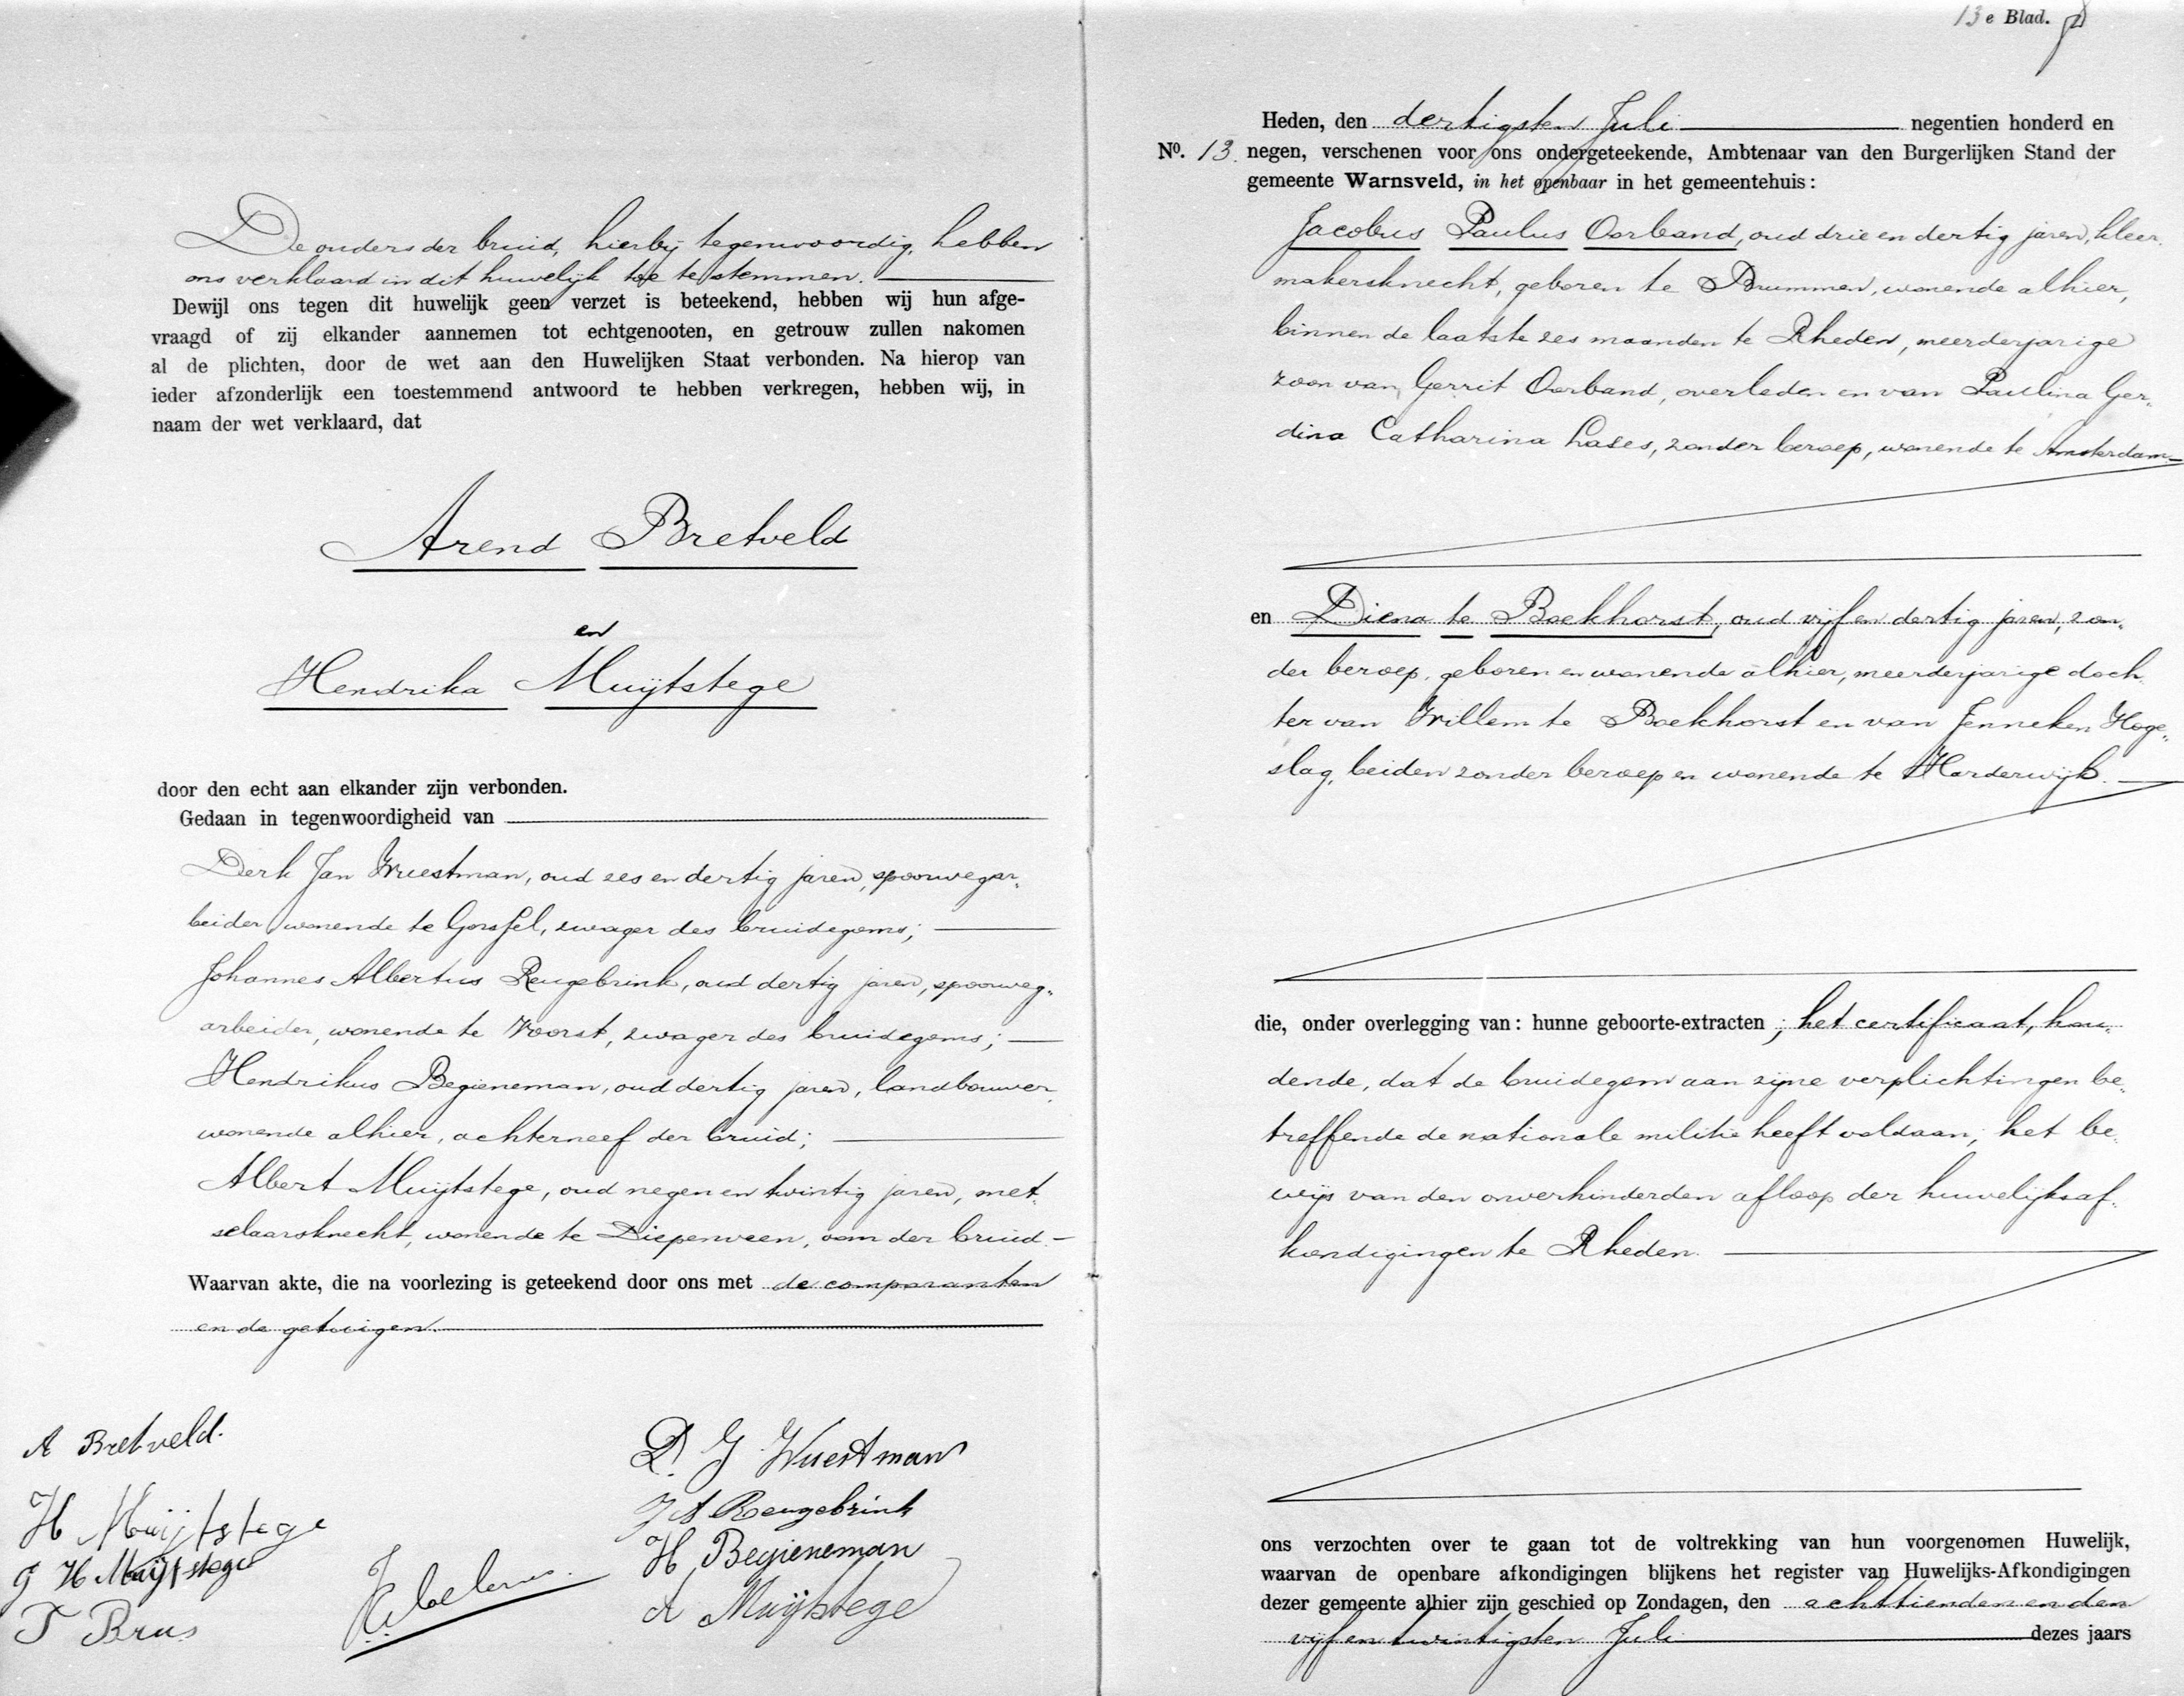 De ouders der bruid, hierbij tegenwoordig, hebben
ons verklaard in dit huwelijk toe te stemmen.
Dewijl ons tegen dit huwelijk geen verzet is beteekend, hebben wij hun afge-
vraagd of zij elkander aannemen tot echtgenooten, en getrouw zullen nakomen
al de plichten, door de wet aan den Huwelijken Staat verbonden. Na hierop van
ieder afzonderlijk een toestemmend antwoord te hebben verkregen, hebben wij, in
naam der wet verklaard, dat
Arend Bretveld
en
Hendrika Muijtstege
door den echt aan elkander zijn verbonden.
Gedaan in tegenwoordigheid van
Derk Jan Wuestman, oud zes en dertig jaren, spoorwegar-
beider, wonende te Gorssel, zwager des bruidegoms;
Johannes Albertus Reugebrink, oud dertig jaren, spoorweg-
arbeider, wonende te Voorst, zwager des bruidegoms;
Hendrikus Begieneman, oud dertig jaren, landbouwer,
wonende alhier, achterneef der bruid;
Albert Muijtstege, oud negen en twintig jaren, met-
selaarsknecht, wonende te Diepenveen, oom der bruid.
Waarvan akte, die na voorlezing is geteekend door ons met de comparanten
en de getuigen.
A Bretveld.
H Muijtstege
G H Muijtstege
T Brus
D. J Wuestman
J A Reugebrink
H Begieneman
A Muijtstege
13e Blad.
Heden, den dertigsten Juli negentien honderd en
No. 13. negen, verschenen voor ons ondergeteekende, Ambtenaar van den Burgerlijken Stand der
gemeente Warnsveld, in het openbaar in het gemeentehuis:
Jacobus Paulus Oorband, oud drie en dertig jaren, kleer-
makersknecht, geboren te Brummen, wonende alhier,
binnen de laatste zes maanden te Rheden, meerderjarige
zoon van Gerrit Oorband, overleden en van Paulina Ger-
dina Catharina Lases, zonder beroep, wonende te Amsterdam
en Diena te Boekhorst, oud vijf en dertig jaren, zon-
der beroep, geboren en wonende alhier, meerderjarige doch-
ter van Willem te Boekhorst en van Jenneken Hoge-
slag, beiden zonder beroep en wonende te Harderwijk.
die, onder overlegging van: hunne geboorte-extracten; het certificaat, hou-
dende, dat de bruidegom aan zijne verplichtingen be-
treffende de nationale militie heeft voldaan; het be-
wijs van den onverhinderden afloop der huwelijksaf-
kondigingen te Rheden.
ons verzochten over te gaan tot de voltrekking van hun voorgenomen Huwelijk,
waarvan de openbare afkondigingen blijkens het register van Huwelijks-Afkondigingen
dezer gemeente alhier zijn geschied op Zondagen, den achttienden en den
vijf en twintigsten Juli dezes jaars